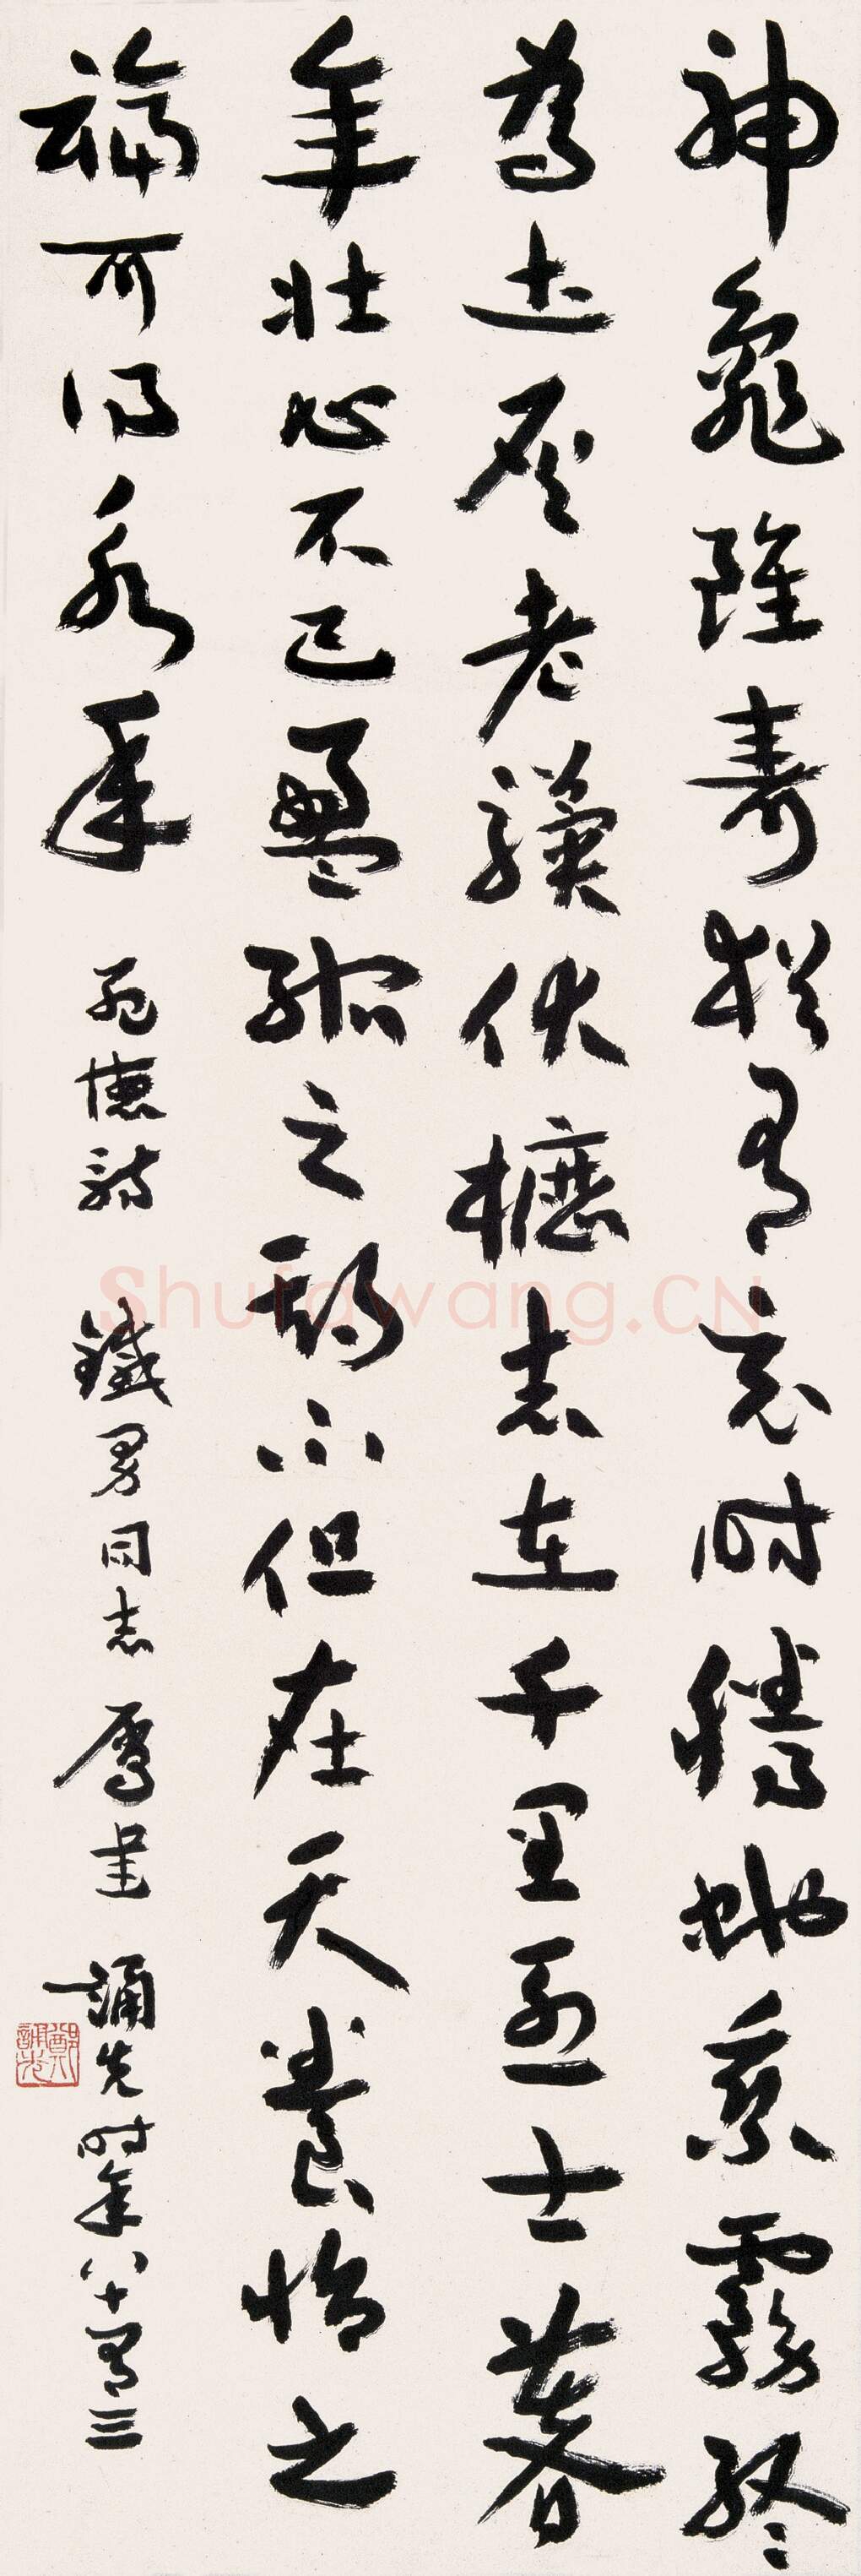 神龜雖壽猶有竟時騰蛇乘霧終
為土灰老驥伏櫪志在千里烈士暮
年壯心不已盈縮之期不但在天養怡之
福可得永年 孟德詩 鐵男同志 屬書 誦先時年八十有三
鄭誦先
Shufawang.CN